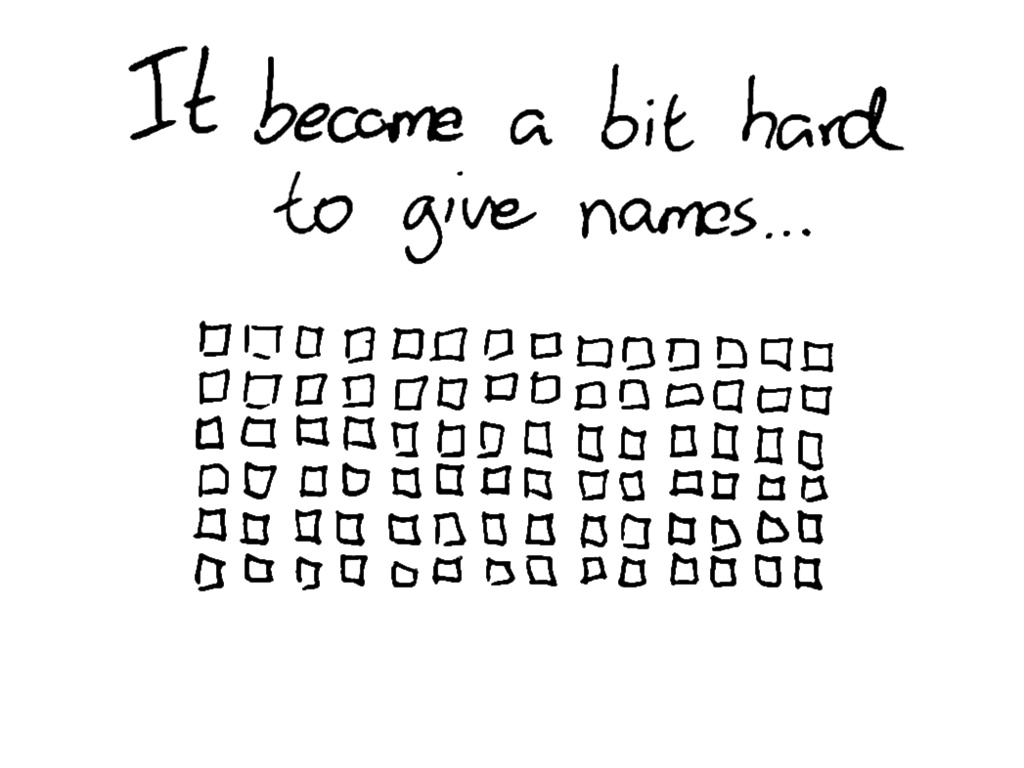 It become a bit hard
to give names...